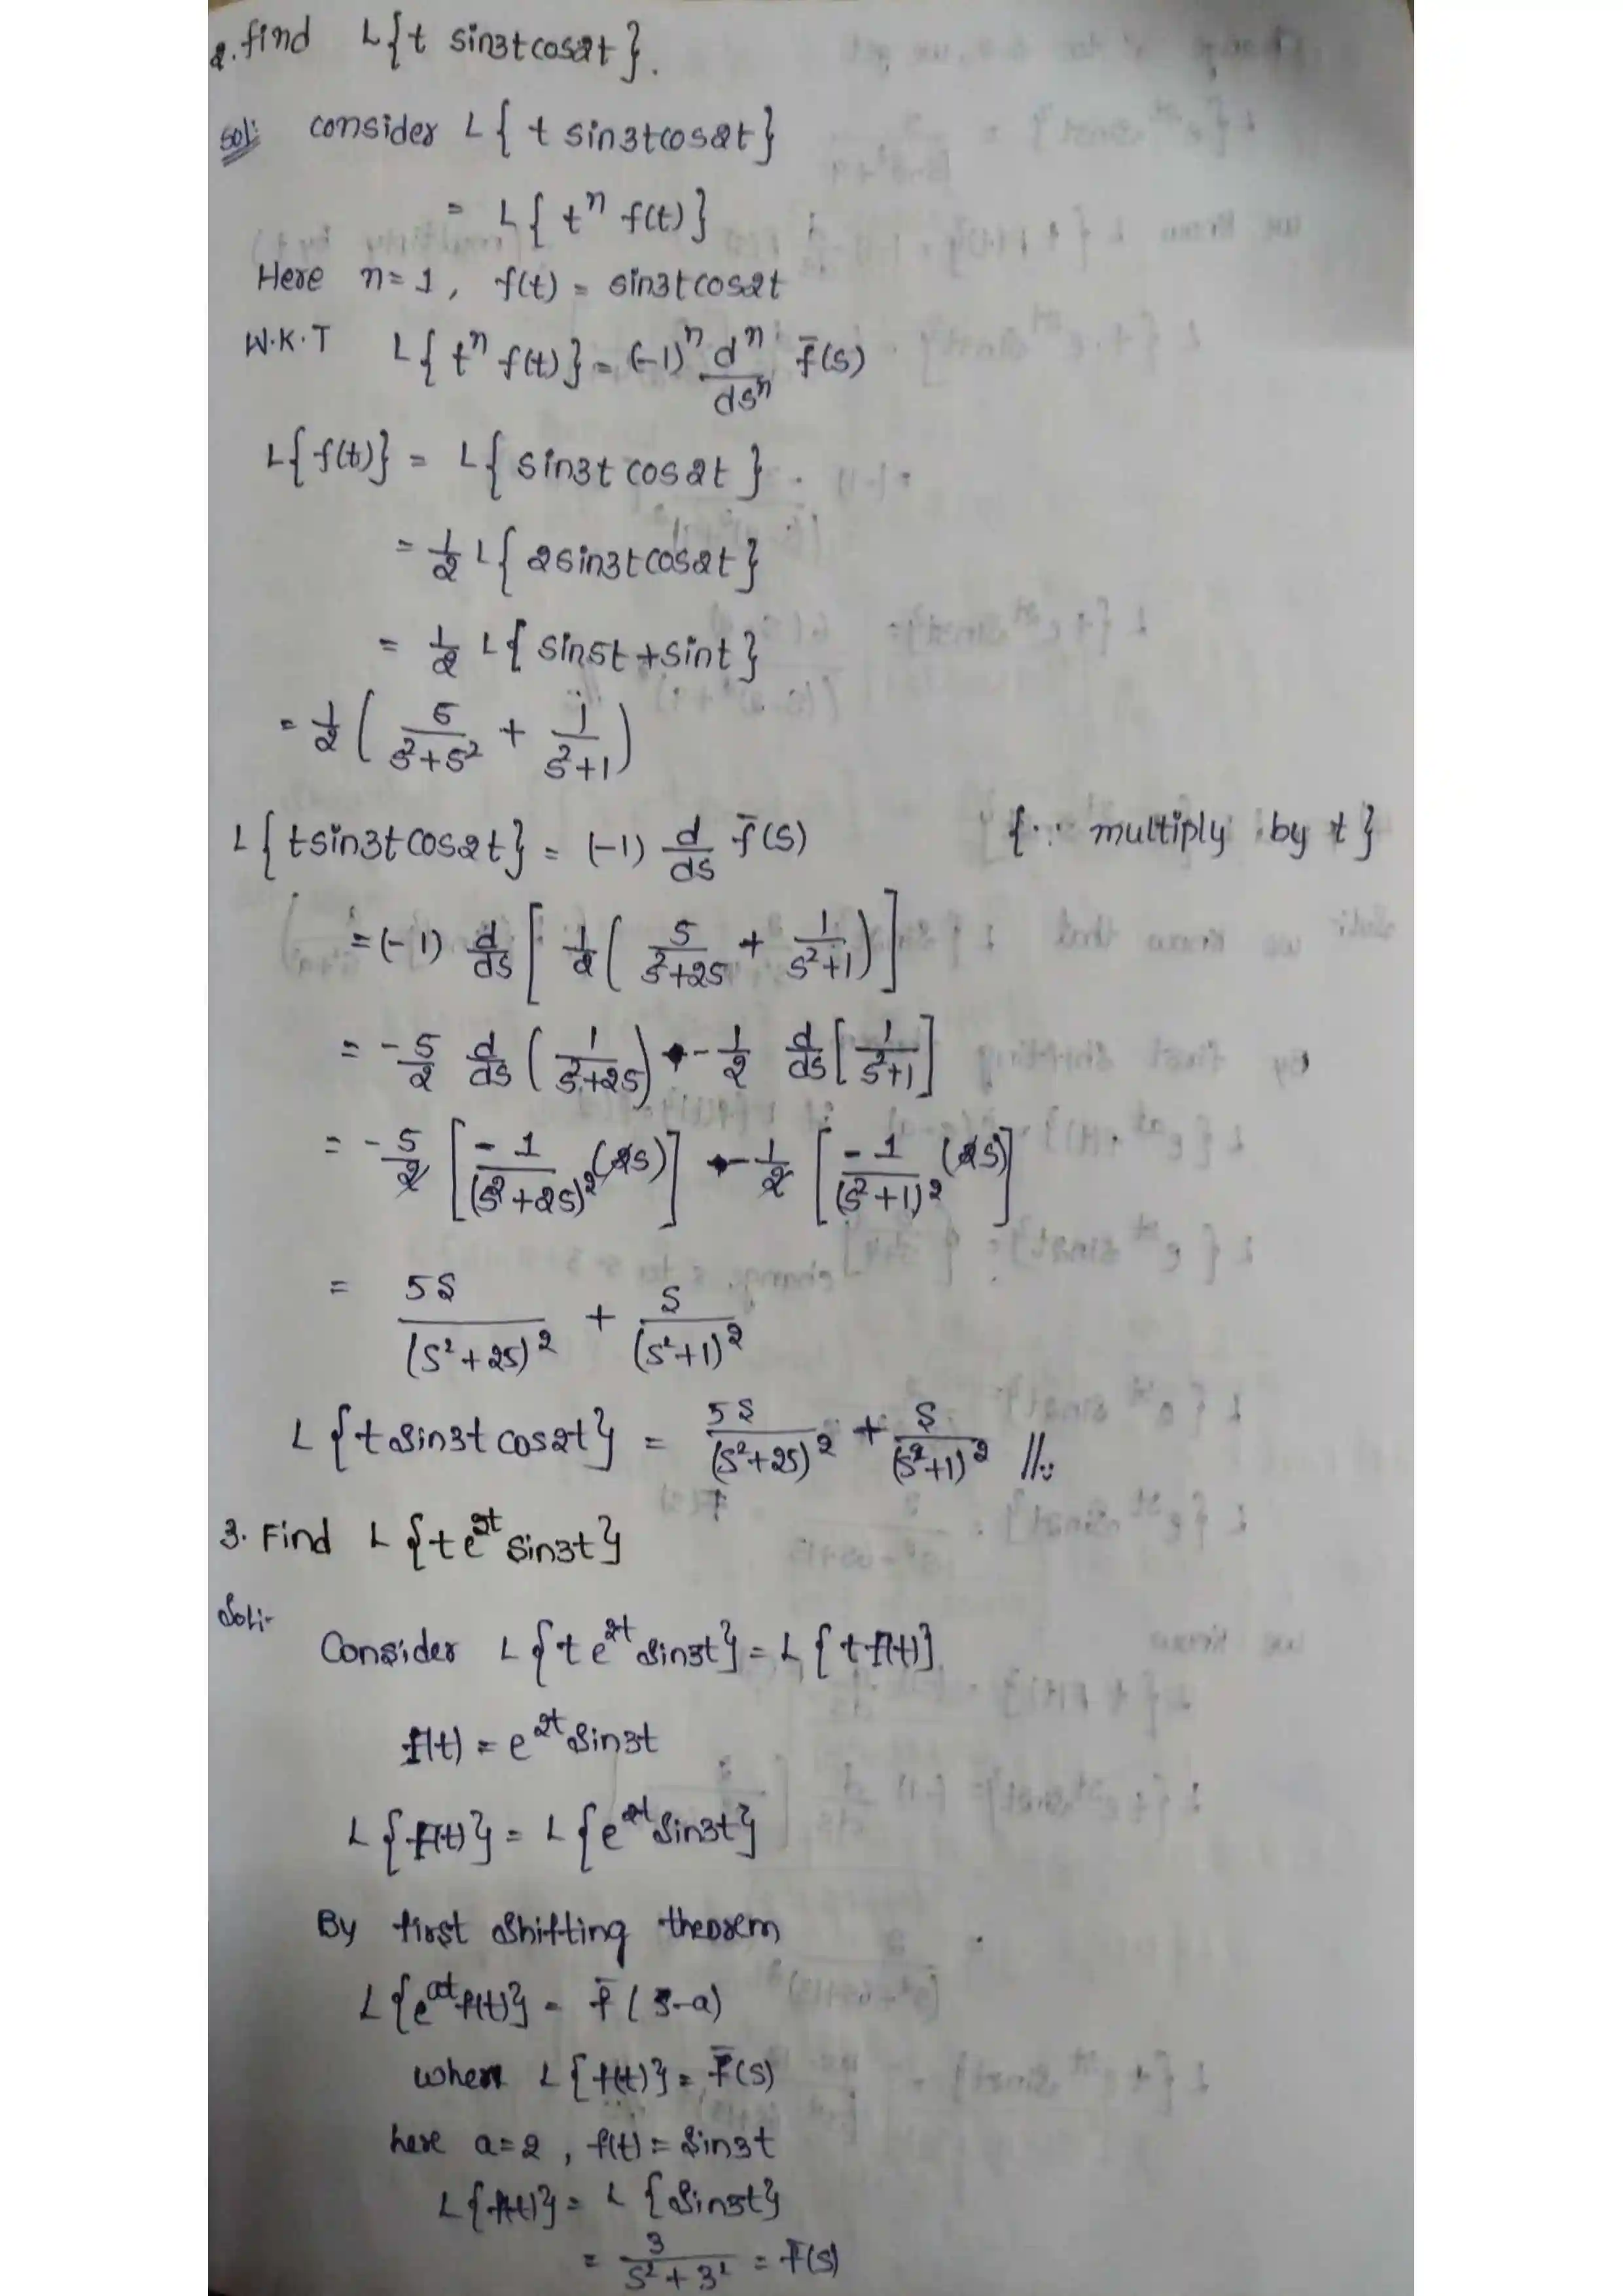 2. find L{t sin3tcos2t}.
sol: consider L{t sin3tcos2t}
= L{t^n f(t)}
Here n=1, f(t) = sin3tcos2t
W.K.T L{t^n f(t)} = (-1)^n d^n/ds^n f̄(s)
L{f(t)} = L{sin3t cos2t}
= 1/2 L{2sin3tcos2t}
= 1/2 L{sin5t+sint}
= 1/2 (5/(s²+5²) + 1/(s²+1))
L{tsin3tcos2t} = (-1) d/ds f̄(s) {∵ multiply by t}
= (-1) d/ds [1/2 (5/(s²+25) + 1/(s²+1))]
= -5/2 d/ds (1/(s²+25)) - 1/2 d/ds [1/(s²+1)]
= -5/2 [-1/(s²+25)² (2s)] - 1/2 [-1/(s²+1)² (2s)]
= 5s/(s²+25)² + s/(s²+1)²
L{t sin3t cos2t} = 5s/(s²+25)² + s/(s²+1)² //.
3. Find L{te^2t sin3t}
Sol:- Consider L{t e^2t sin3t} = L{t f(t)}
f(t) = e^2t sin3t
L{f(t)} = L{e^2t sin3t}
By first shifting theorem
L{e^at f(t)} = f̄(s-a)
when L{f(t)} = f̄(s)
here a=2, f(t) = sin3t
L{f(t)} = L{sin3t}
= 3/(s²+3²) = f̄(s)